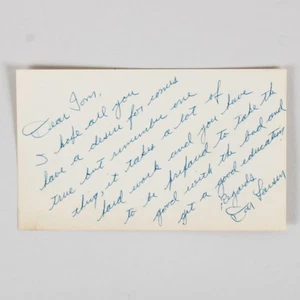 Dear Tom,
I hope all you
have a desire for comes
true but remember one
thing, it takes a lot of
hard work and you have
to be prepared to take the
good with the bad and
get a good education
Regards
Don Larsen